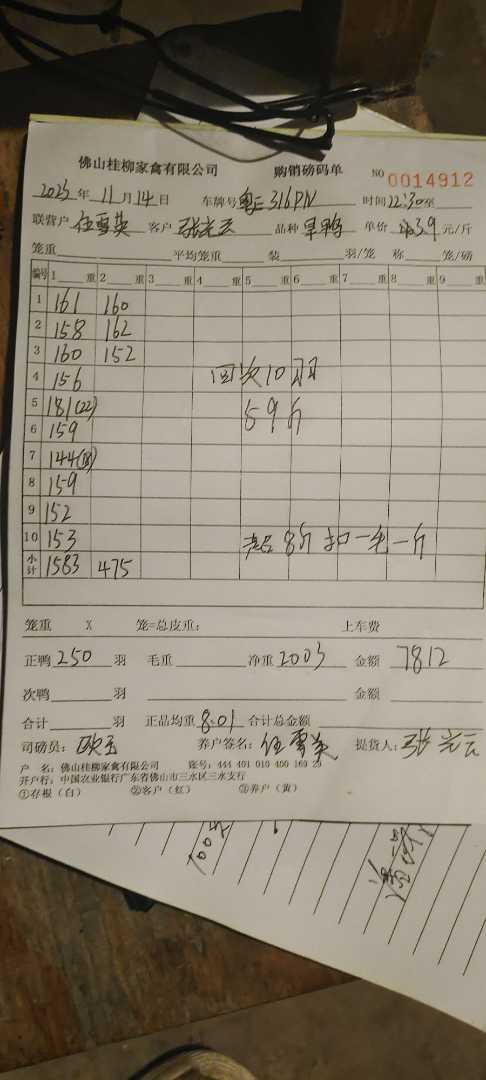 佛山桂柳家禽有限公司 购销磅码单 NO 0014912
2023年 11月14日 车牌号 粤E316PN 时间12:30至
联营户 伍雪英 客户 张光云 品种 旱鸭 单价 3.9 元/斤
笼重 平均笼重 装 羽/笼 称 笼/磅
编号 1 重 2 重 3 重 4 重 5 重 6 重 7 重 8 重 9 重
1 161 160
2 158 162
3 160 152
4 156 回次10羽
5 181(22) 59斤
6 159
7 144(18)
8 159
9 152
10 153 8斤扣一毛一斤
小计 1583 475
笼重 X 笼=总皮重: 上车费
正鸭 250 羽 毛重 净重 2003 金额 7812
次鸭 羽 金额
合计 羽 正品均重 8.01 合计总金额
司磅员: 养户签名: 伍雪英 提货人: 张光云
户 名: 佛山桂柳家禽有限公司 账号: 444 401 010 400 169 23
开户行: 中国农业银行广东省佛山市三水区三水支行
①存根（白） ②客户（红） ③养户（黄）